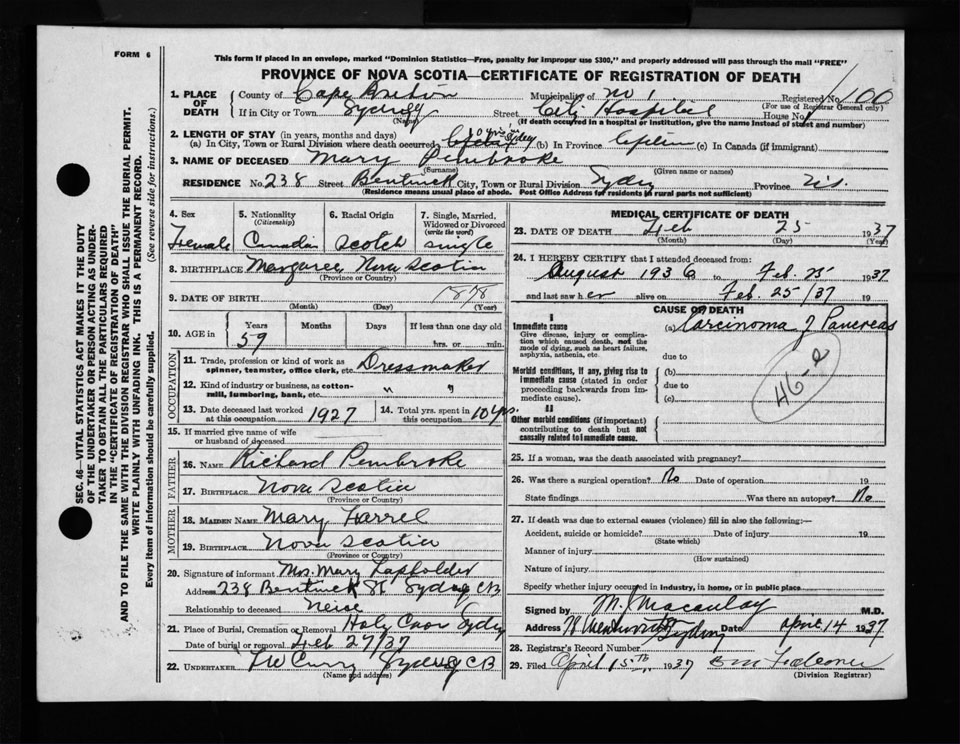 FORM 6
This form if placed in an envelope, marked "Dominion Statistics—Free, penalty for improper use $300," and properly addressed will pass through the mail "FREE"
PROVINCE OF NOVA SCOTIA—CERTIFICATE OF REGISTRATION OF DEATH
1. PLACE OF DEATH County of Cape Breton Municipality of No 1 Registered No. 100
(For use of Registrar General only)
If in City or Town Sydney Street City Hospital House No.
(Name) (If death occurred in a hospital or institution, give the name instead of street and number)
2. LENGTH OF STAY (in years, months and days)
(a) In City, Town or Rural Division where death occurred 10 yrs in Sydney (b) In Province Lifetime (c) In Canada (if immigrant)
3. NAME OF DECEASED Mary Pembroke
(Surname) (Given name or names)
RESIDENCE No. 238 Street Bentinck City, Town or Rural Division Sydney Province N.S.
(Residence means usual place of abode. Post Office Address for residents in rural parts not sufficient)
4. Sex Female
5. Nationality (Citizenship) Canadian
6. Racial Origin Scotch
7. Single, Married, Widowed or Divorced (write the word) single
8. BIRTHPLACE Margaree Nova Scotia
(Province or Country)
9. DATE OF BIRTH 1878
(Month) (Day) (Year)
10. AGE in Years Months Days If less than one day old
59 hrs. or min.
OCCUPATION
11. Trade, profession or kind of work as spinner, teamster, office clerk, etc. Dressmaker
12. Kind of industry or business, as cotton-mill, lumbering, bank, etc. " "
13. Date deceased last worked at this occupation 1927
14. Total yrs. spent in this occupation 10 yrs.
15. If married give name of wife or husband of deceased
FATHER
16. NAME Richard Pembroke
17. BIRTHPLACE Nova Scotia
(Province or Country)
MOTHER
18. MAIDEN NAME Mary Farrel
19. BIRTHPLACE Nova Scotia
(Province or Country)
20. Signature of informant Mrs. Mary
Address 238 Bentinck St Sydney CB
Relationship to deceased Neise
21. Place of Burial, Cremation or Removal Holy Cross Sydney
Date of burial or removal Feb 27/37
22. UNDERTAKER Curry Sydney CB
(Name and address)
MEDICAL CERTIFICATE OF DEATH
23. DATE OF DEATH Feb 25 1937
(Month) (Day) (Year)
24. I HEREBY CERTIFY that I attended deceased from:
August 1936 to Feb. 25 1937
and last saw her alive on Feb. 25/37 19
CAUSE OF DEATH
I
Immediate cause (a) Carcinoma of Pancreas
Give disease, injury or complication which caused death, not the mode of dying, such as heart failure, asphyxia, asthenia, etc.
due to
Morbid conditions, if any, giving rise to immediate cause (stated in order proceeding backwards from immediate cause).
(b)
due to
(c)
46-e
II
Other morbid conditions (if important) contributing to death but not causally related to immediate cause.
25. If a woman, was the death associated with pregnancy?
26. Was there a surgical operation? No Date of operation 19
State findings Was there an autopsy? No
27. If death was due to external causes (violence) fill in also the following:—
Accident, suicide or homicide? Date of injury 19
(State which)
Manner of injury
(How sustained)
Nature of injury
Specify whether injury occurred in industry, in home, or in public place
Signed by M. J. Macaulay M.D.
Address Sydney Date April 14 1937
28. Registrar's Record Number
29. Filed April 15th 1937
(Division Registrar)
SEC. 46—VITAL STATISTICS ACT MAKES IT THE DUTY
OF THE UNDERTAKER OR PERSON ACTING AS UNDER-
TAKER TO OBTAIN ALL THE PARTICULARS REQUIRED
IN THE "CERTIFICATE OF REGISTRATION OF DEATH"
AND TO FILE THE SAME WITH THE DIVISION REGISTRAR WHO SHALL ISSUE THE BURIAL PERMIT.
WRITE PLAINLY WITH UNFADING INK. THIS IS A PERMANENT RECORD.
Every item of information should be carefully supplied. (See reverse side for instructions.)